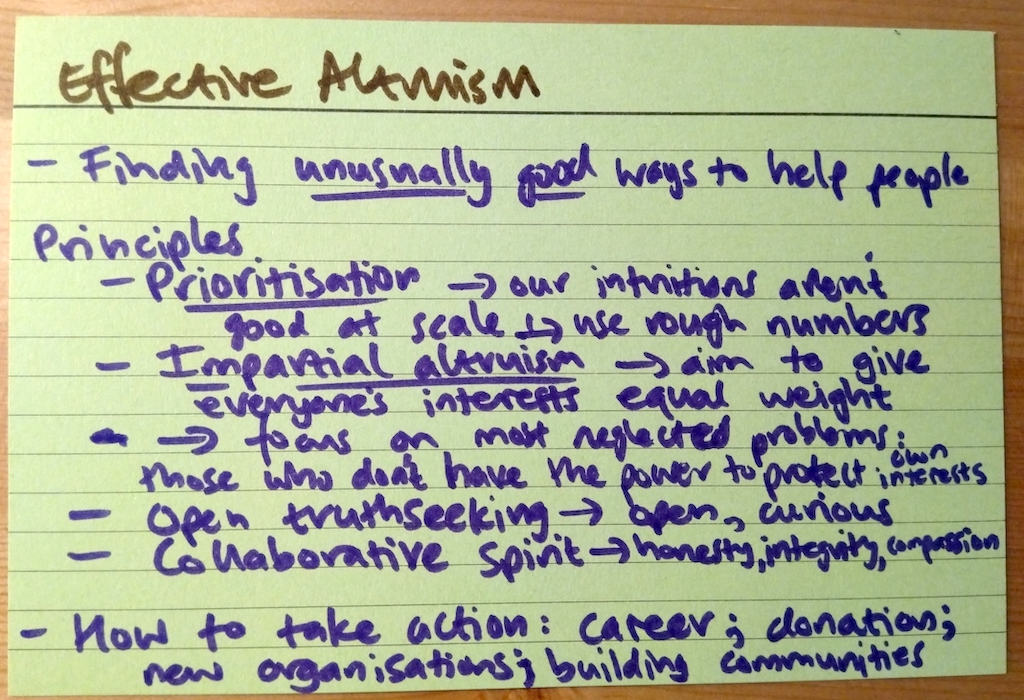 Effective Altruism
- Finding unusually good ways to help people
Principles
- Prioritisation → our intuitions aren't
good at scale ↳ use rough numbers
- Impartial altruism → aim to give
everyone's interests equal weight
- → focus on most neglected problems:
those who don't have the power to protect own interests
- Open truthseeking → open, curious
- Collaborative spirit → honesty, integrity, compassion
- How to take action: career; donation;
new organisations; building communities